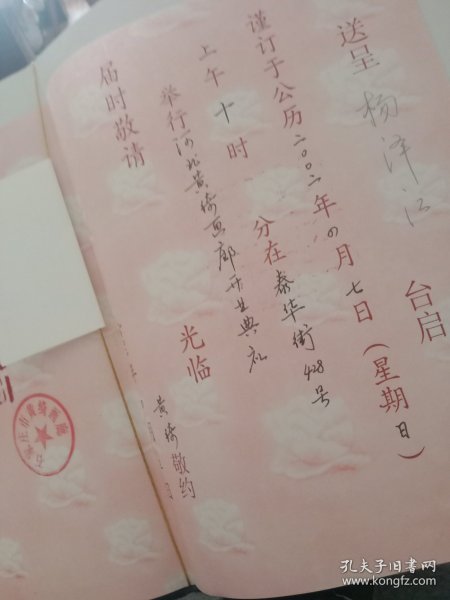 送呈 杨泽江 台启
谨订于公历二〇〇二年四月七日(星期日)
上午十时 分在泰华街428号
举行河北黄绮画廊开业典礼
届时敬请
光临
黄绮敬约
孔夫子旧书网
www.kongfz.com